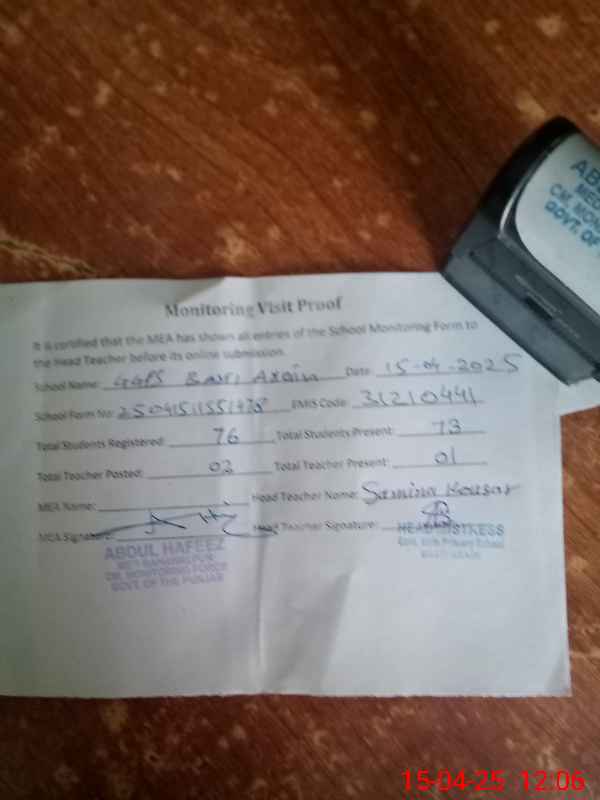 Monitoring Visit Proof
It is certified that the MEA has shown all entries of the School Monitoring Form to
the Head Teacher before its online submission.
School Name: GGPS Date: 15-04-2025
School Form No: EMIS Code: 31210441
Total Students Registered: 76 Total Students Present: 73
Total Teacher Posted: 02 Total Teacher Present: 01
MEA Name: Head Teacher Name: Samina Kousar
MEA Signature: Head Teacher Signature:
ABDUL HAFEEZ
CM. MONITORING FORCE
GOVT. OF THE PUNJAB
HEAD MISTRESS
Govt. Girls Primary School
CM. MON
GOVT. OF
15-04-25 12:06